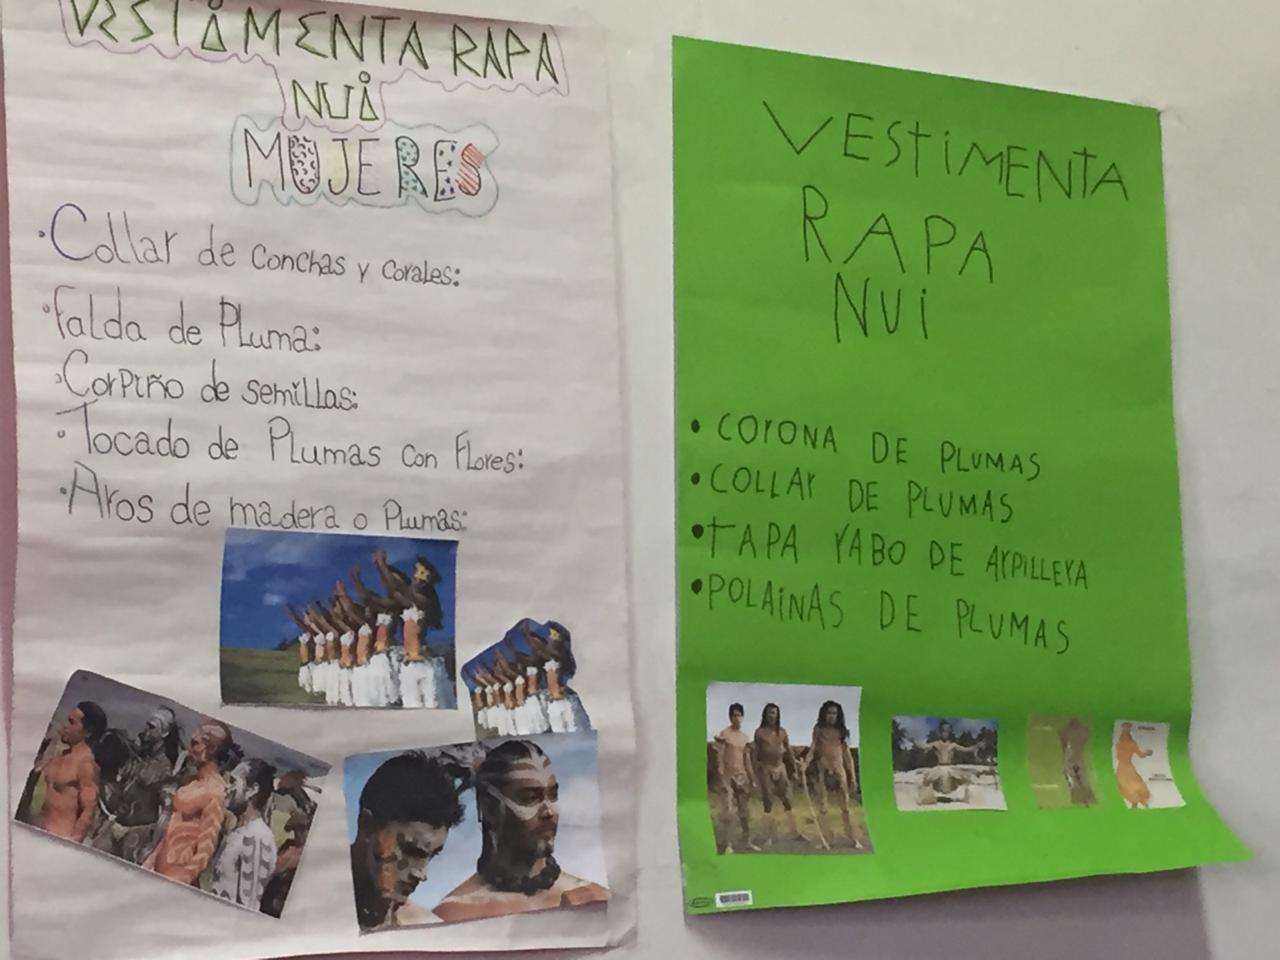 VESTiMENTA RAPA
NUi
MUJERES
·Collar de conchas y corales:
·falda de Pluma:
·Corpiño de semillas:
·Tocado de Plumas con Flores:
·Aros de madera o Plumas:
VESTiMENTA
RAPA
NUi
• COrONA DE PLUMAS
• COLLAr DE PLUMAS
• TAPA rABO DE ArPiLLErA
• POLAiNAS DE PLUMAS